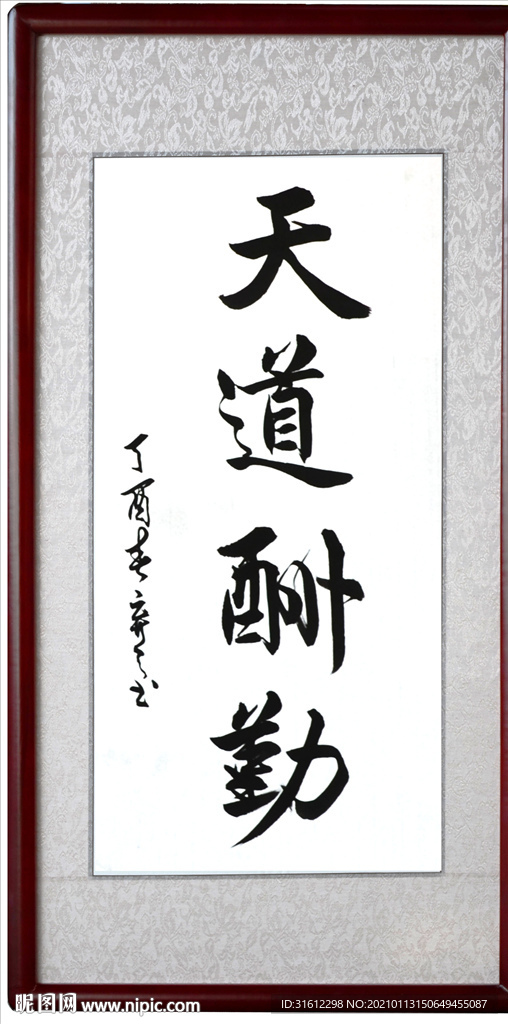 天道酬勤
丁酉春 弃之书
昵图网 www.nipic.com
ID:31612298 NO:20210113150649455087